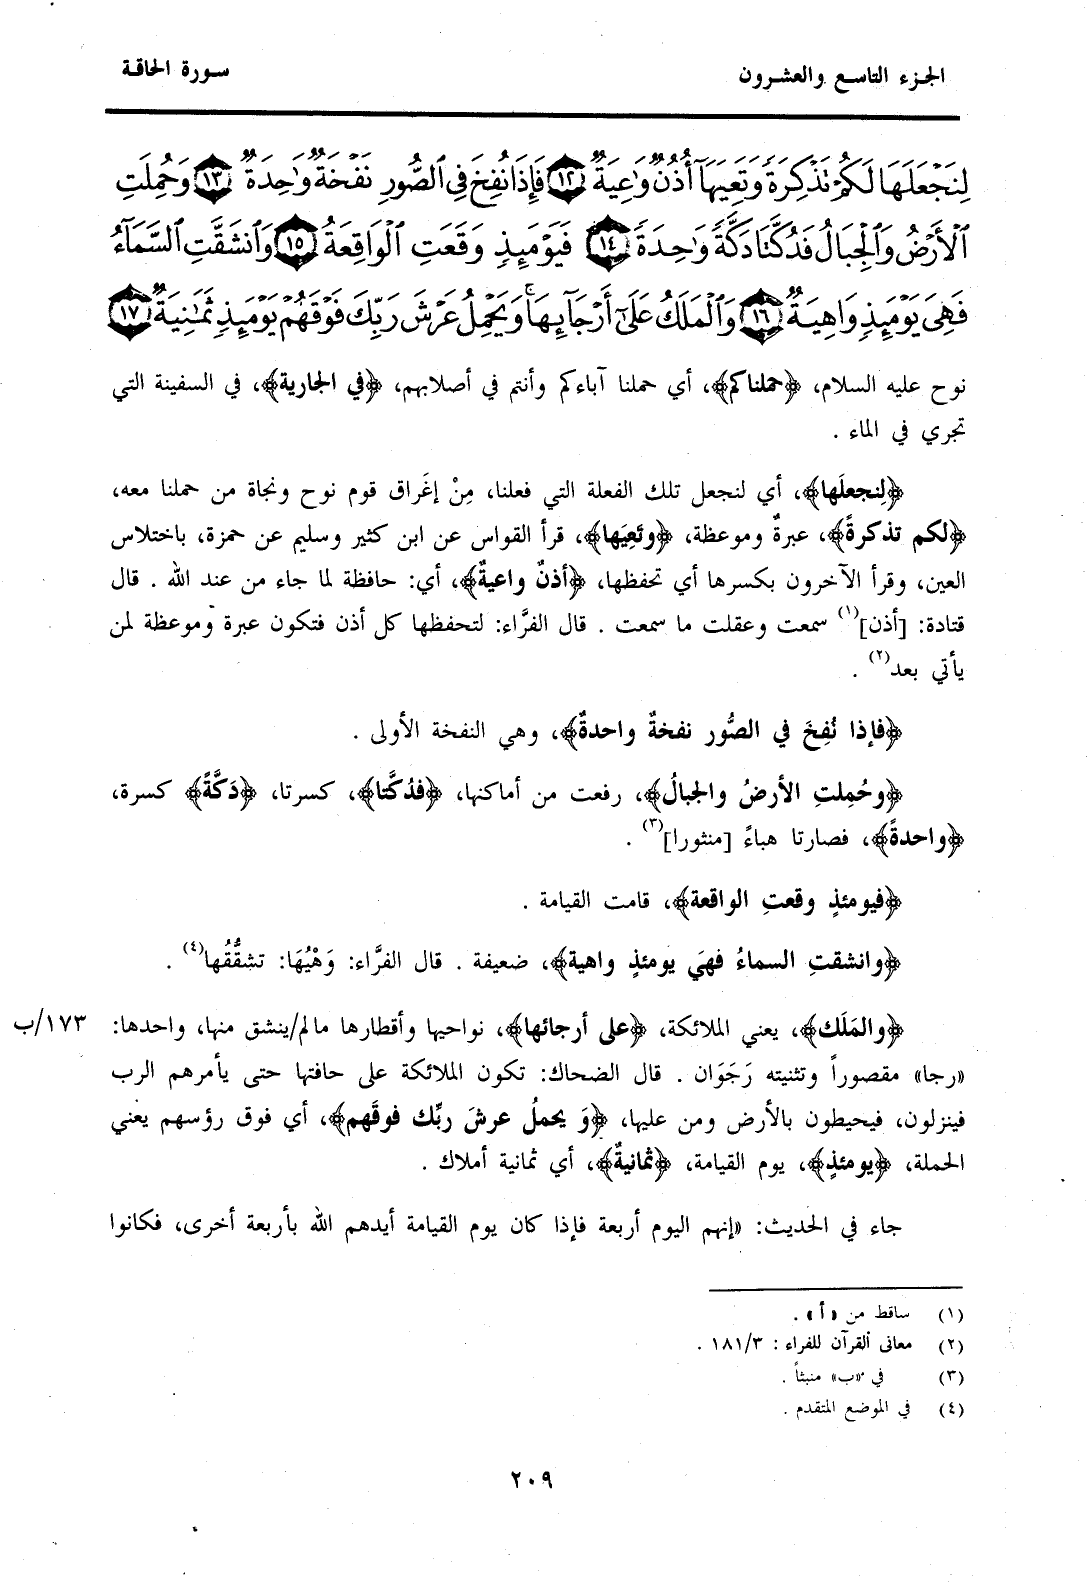 الجزء التاسع والعشرون
سورة الحاقة
لِنَجْعَلَهَا لَكُمْ تَذْكِرَةً وَتَعِيَهَآ أُذُنٌ وَٰعِيَةٌ ١٢ فَإِذَا نُفِخَ فِى ٱلصُّورِ نَفْخَةٌ وَٰحِدَةٌ ١٣ وَحُمِلَتِ
ٱلْأَرْضُ وَٱلْجِبَالُ فَدُكَّتَا دَكَّةً وَٰحِدَةً ١٤ فَيَوْمَئِذٍ وَقَعَتِ ٱلْوَاقِعَةُ ١٥ وَٱنشَقَّتِ ٱلسَّمَآءُ
فَهِىَ يَوْمَئِذٍ وَاهِيَةٌ ١٦ وَٱلْمَلَكُ عَلَىٰٓ أَرْجَآئِهَا ۚ وَيَحْمِلُ عَرْشَ رَبِّكَ فَوْقَهُمْ يَوْمَئِذٍ ثَمَٰنِيَةٌ ١٧
نوح عليه السلام، ﴿حملناكم﴾، أي حملنا آباءكم وأنتم في أصلابهم، ﴿في الجارية﴾، في السفينة التي
تجري في الماء .
﴿لِنجعلَها﴾، أي لنجعل تلك الفعلة التي فعلنا، مِنْ إغَراق قوم نوح ونجاة من حملنا معه،
﴿لكم تذكرةً﴾، عبرةٌ وموعظة، ﴿وتَعِيَها﴾، قرأ القواس عن ابن كثير وسليم عن حمزة، باختلاس
العين، وقرأ الآخرون بكسرها أي تحفظها، ﴿أذنٌ واعيةٌ﴾، أي: حافظة لما جاء من عند الله . قال
قتادة: [أذن](١) سمعت وعقلت ما سمعت . قال الفرَّاء: لتحفظها كل أذن فتكون عبرة وموعظة لمن
يأتي بعد(٢) .
﴿فإذا نُفِخَ في الصُّور نفخةٌ واحدةٌ﴾، وهي النفخة الأولى .
﴿وحُمِلتِ الأرضُ والجبالُ﴾، رفعت من أماكنها، ﴿فدُكَّتا﴾، كسرتا، ﴿دَكَّةً﴾ كسرة،
﴿واحدةً﴾، فصارتا هباءً [منثورا](٣) .
﴿فيومئذٍ وقعتِ الواقعة﴾، قامت القيامة .
﴿وانشقتِ السماءُ فهيَ يومئذٍ واهية﴾، ضعيفة . قال الفرَّاء: وَهْيُهَا: تشقُّقُها(٤) .
﴿والمَلَك﴾، يعني الملائكة، ﴿على أرجائها﴾، نواحيها وأقطارها مالم/ينشق منها، واحدها: ١٧٣/ب
«رجا» مقصوراً وتثنيته رَجَوَان . قال الضحاك: تكون الملائكة على حافتها حتى يأمرهم الرب
فينزلون، فيحيطون بالأرض ومن عليها، ﴿وَيحملُ عرشَ ربِّك فوقَهم﴾، أي فوق رؤسهم يعني
الحملة، ﴿يومئذٍ﴾، يوم القيامة، ﴿ثمانيةٌ﴾، أي ثمانية أملاك .
جاء في الحديث: «إنهم اليوم أربعة فإذا كان يوم القيامة أيدهم الله بأربعة أخرى، فكانوا
(١) ساقط من «أ» .
(٢) معاني القرآن للفراء : ١٨١/٣ .
(٣) في «ب» منبثاً .
(٤) في الموضع المتقدم .
٢٠٩